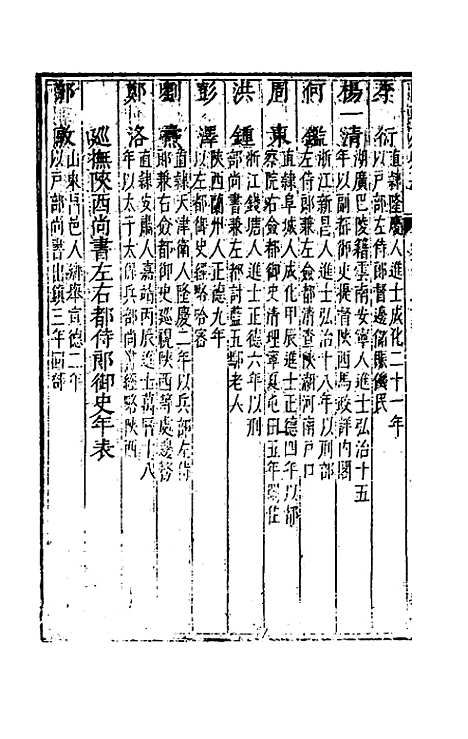 李衍
直隸隆慶人進士成化二十一年
以戶部左侍郎督邊儲賑饑民
楊一清
湖廣巴陵籍雲南安寧人進士弘治十五
年以副都御史提督陝西馬政詳內閣
何鑑
浙江新昌人進士弘治十八年以刑部
左侍郎兼左僉都清查陝潮河南戶口
周東
直隸阜城人成化甲辰進士正德四年以都
察院右僉都御史清理寧夏屯田五年
洪鍾
浙江錢塘人進士正德六年以刑
部尚書兼左都討藍五鄢老人
彭澤
陝西蘭州人正德九年
以左都御史經略哈密
劉燾
直隸天津衛人隆慶二年以兵部左侍
郎兼右僉都御史巡視陝西等處邊務
鄭洛
直隸安肅人嘉靖丙辰進士萬曆十八
年以太子太保兵部尚書經略陝西
巡撫陝西尚書左右都侍郎御史年表
郭敦
山東堂邑人鄉舉宣德二年
以戶部尚書出鎮三年回部